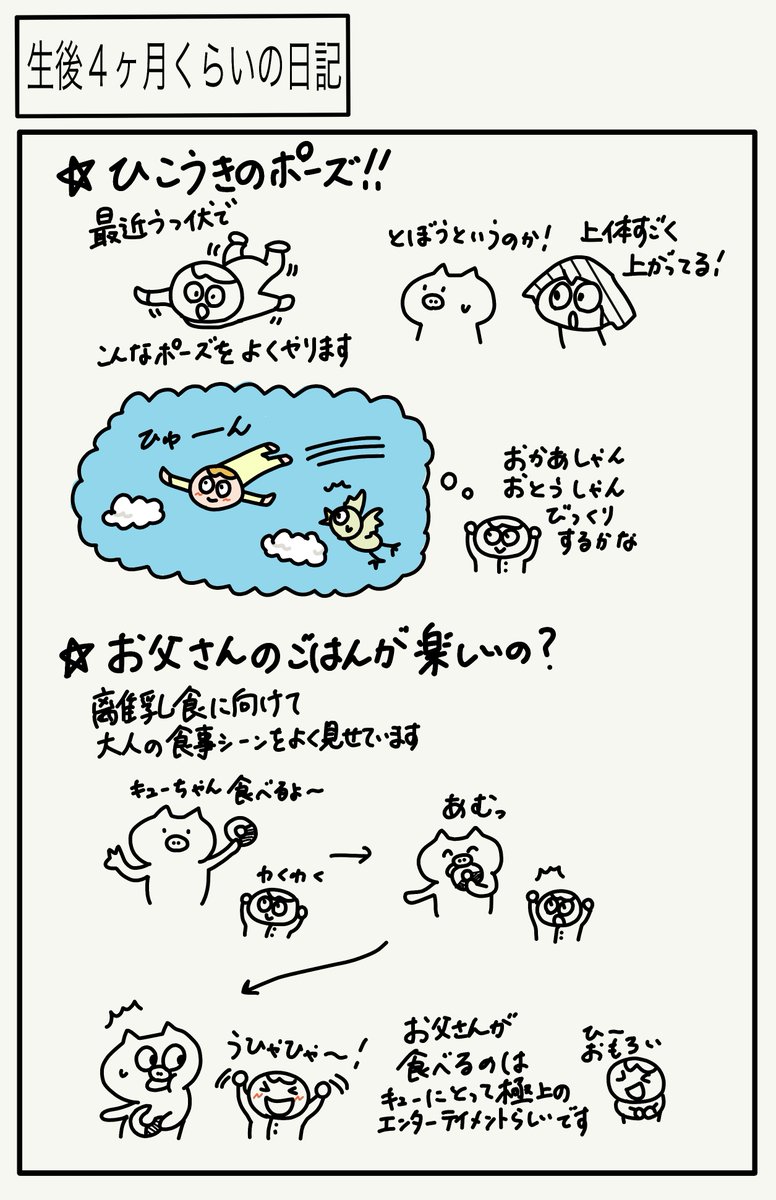 生後4ヶ月くらいの日記
☆ひこうきのポーズ!!
最近うつ伏で
こんなポーズをよくやります
とぼうというのか!
上体すごく
上がってる!
ひゅーーん
おかあしゃん
おとうしゃん
びっくり
するかな
☆お父さんのごはんが楽しいの?
離乳食に向けて
大人の食事シーンをよく見せています
キューちゃん 食べるよ〜
わくわく
あむっ
うひゃひゃ〜!
お父さんが
食べるのは
キューにとって極上の
エンターテイメントらしいです
ひー
おもろい